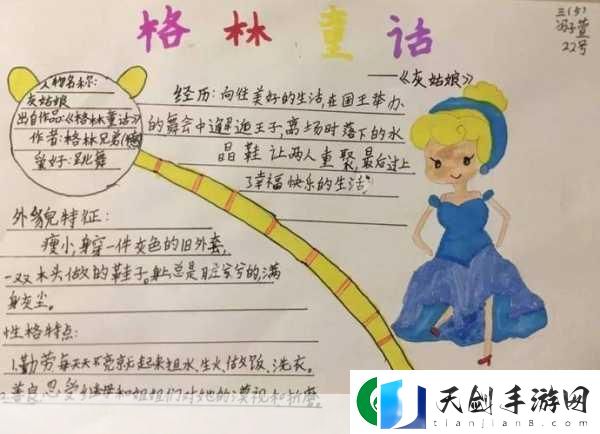 格林童话
三(5)
冯子萱
22号
——《灰姑娘》
人物名称:
灰姑娘
出自作品:《格林童话》
作者:格林兄弟(德)
爱好:跳舞
经历:向往美好的生活,在国王举办
的舞会中邂逅王子,离场时落下的水
晶鞋让两人重聚,最后过上
了幸福快乐的生活。
外貌特征:
瘦小,身穿一件灰色的旧外套,
一双木头做的鞋子。身上总是脏兮兮的,满
身灰尘。
性格特点:
1.勤劳每天天不亮就起来担水,生火,做饭,洗衣。
2.善良,忍受继母和姐姐们对她的漠视和折磨。
天剑手游网
tianjian8.com